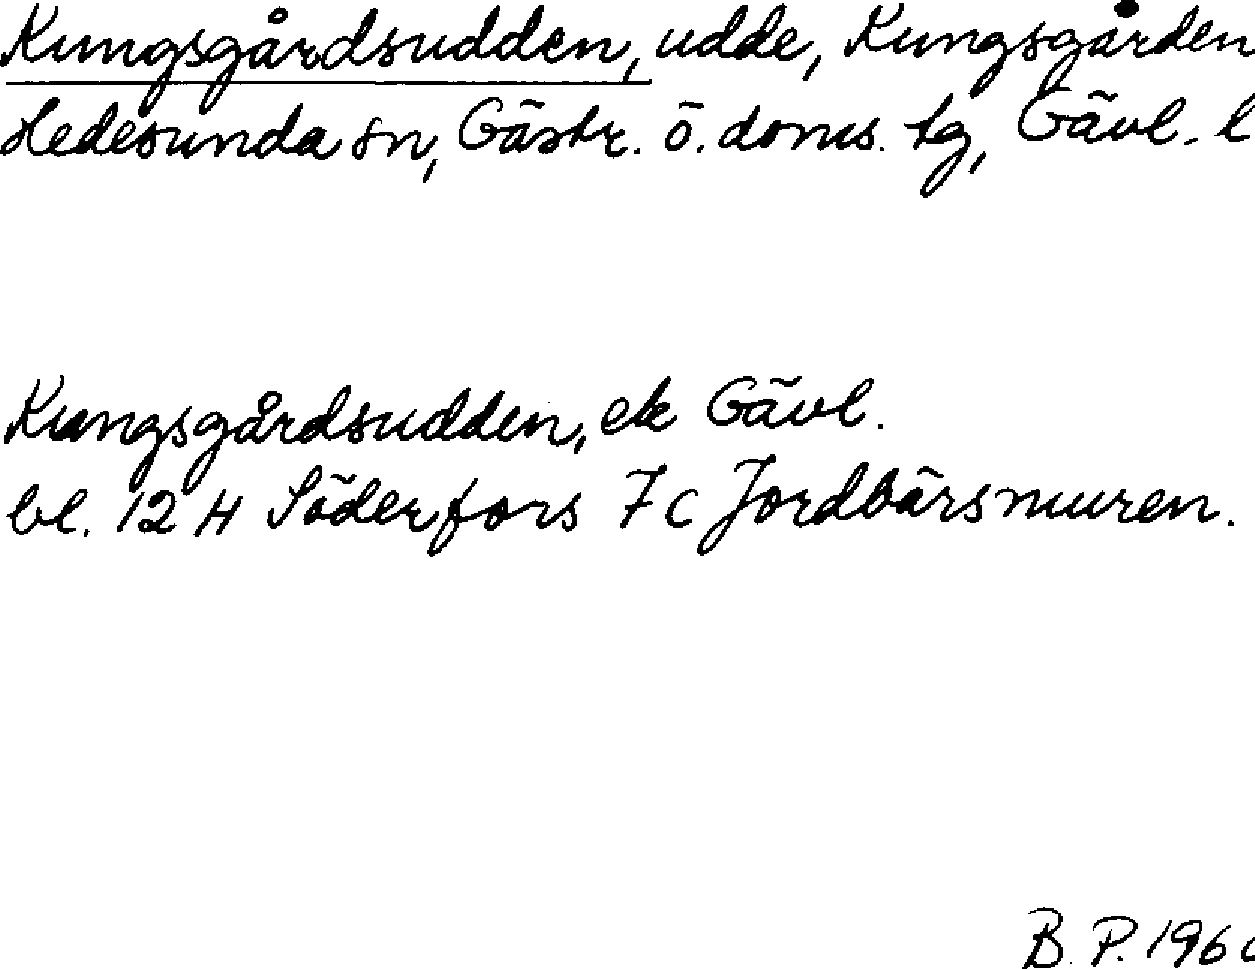 Kungsgårdsudden, udde, Kungsgården
Hedesunda sn, Gästr. ö. doms. tg, Gävl. l
Kungsgårdsudden, ek Gävl.
bl. 12 H Söderfors 7 c Jordbärsmuren.
B. P. 196